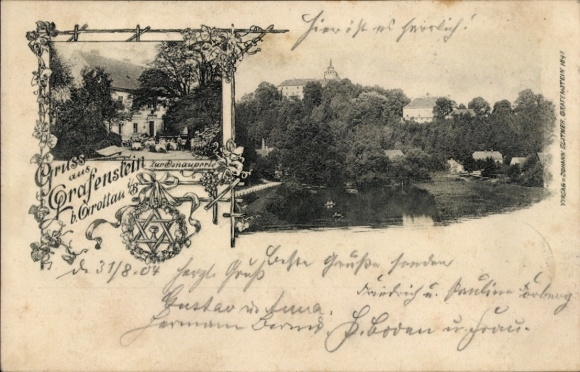 Hier ist es herrlich!
Gruss
aus
Grafenstein
b. Grottau
Zur Donauperle
VERLAG v. JOHANN GRAFENSTEIN
d. 31/8. 04
herzl. Gruß
Beste Grüße senden
Friedrich u. Pauline
Gustav u. Anna.
Hermann H. Boden u. Frau.